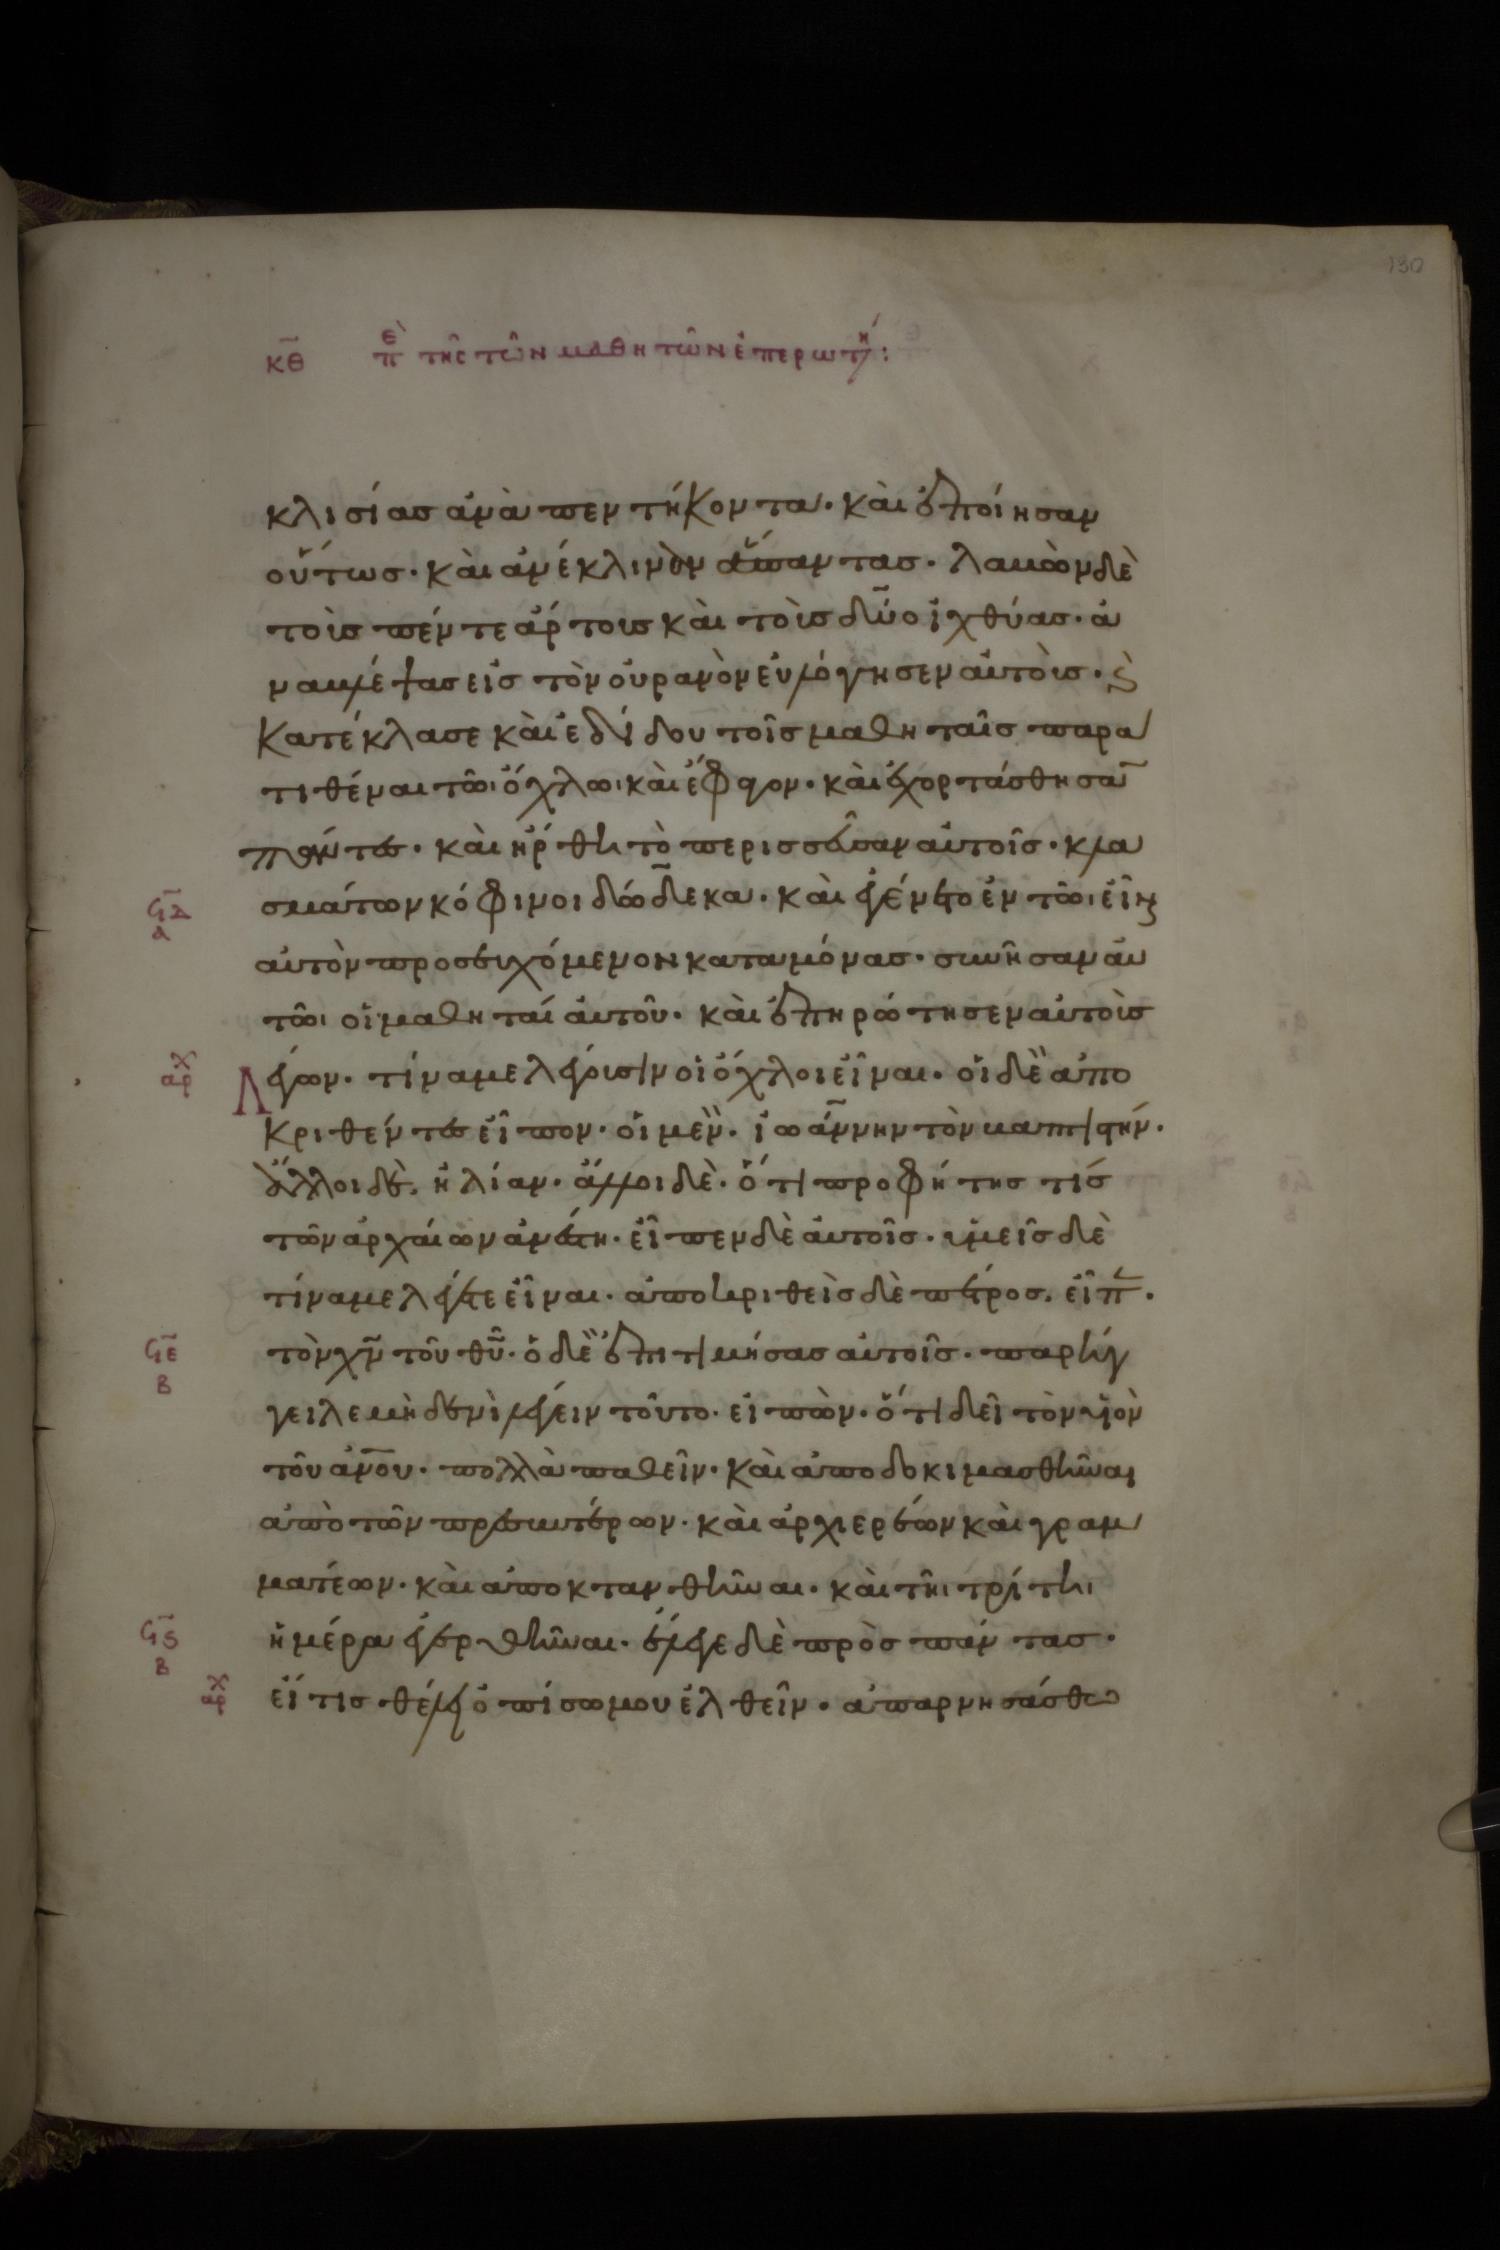 130
κθ πε της τῶν μαθητῶν ἐπερωτή:
κλισίας ἀνὰ πεντήκοντα· καὶ ἐποίησαν
οὕτως· καὶ ἀνέκλιναν ἅπαντας· λαβὼν δὲ
τοὺς πέντε ἄρτους καὶ τοὺς δύο ἰχθύας· ἀ
ναβλέψας εἰς τὸν οὐρανὸν εὐλόγησεν αὐτοὺς· ϗ
κατέκλασε καὶ ἐδίδου τοῖς μαθηταῖς παρα
τιθέναι τῶι ὄχλωι καὶ ἔφαγον· καὶ ἐχορτάσθησα̅
πάντες· καὶ ἤρθη τὸ περισσεῦσαν αὐτοῖς· κλα
σμάτων κόφινοι δώδεκα· καὶ ἐγένετο ἐν τῶι εἶναι
ϟδ
α
αὐτὸν προσευχόμενον καταμόνας· συνῆσαν αὐ
τῶι οἱ μαθηταὶ αὐτοῦ· καὶ ἐπηρώτησεν αὐτοὺς
αρχ
λέγων· τίνα με λέγουσιν οἱ ὄχλοι εἶναι· οἱ δὲ ἀπο
κριθέντες εἶπον· οἱ μὲν· ἰωάννην τὸν βαπτιστήν·
ἄλλοι δὲ, ἠλίαν· ἄλλοι δὲ· ὅτι προφήτης τίς
τῶν ἀρχαίων ἀνέστη· εἶπεν δὲ αὐτοῖς· ὑμεῖς δὲ
τίνα με λέγετε εἶναι· ἀποκριθεὶς δὲ πέτρος, εἶπ·
τὸν χν τοῦ θυ· ὁ δὲ ἐπιτιμήσας αὐτοῖς· παρήγ
ϟε
β
γειλε μηδενὶ λέγειν τοῦτο· εἰπὼν· ὅτι δεῖ τὸν υἱὸν
τοῦ ἀνου· πολλὰ παθεῖν· καὶ ἀποδοκιμασθῆναι
ἀπὸ τῶν πρεσβυτέρων· καὶ ἀρχιερέων καὶ γραμ
ματέων· καὶ ἀποκτανθῆναι· καὶ τῆι τρίτηι
ἡμέρα ἐγερθῆναι· ἔλεγε δὲ πρὸς πάντας·
ϟϛ
β
αρχ
εἴ τις θέλει ὀπίσω μου ἐλθεῖν· ἀπαρνησάσθω